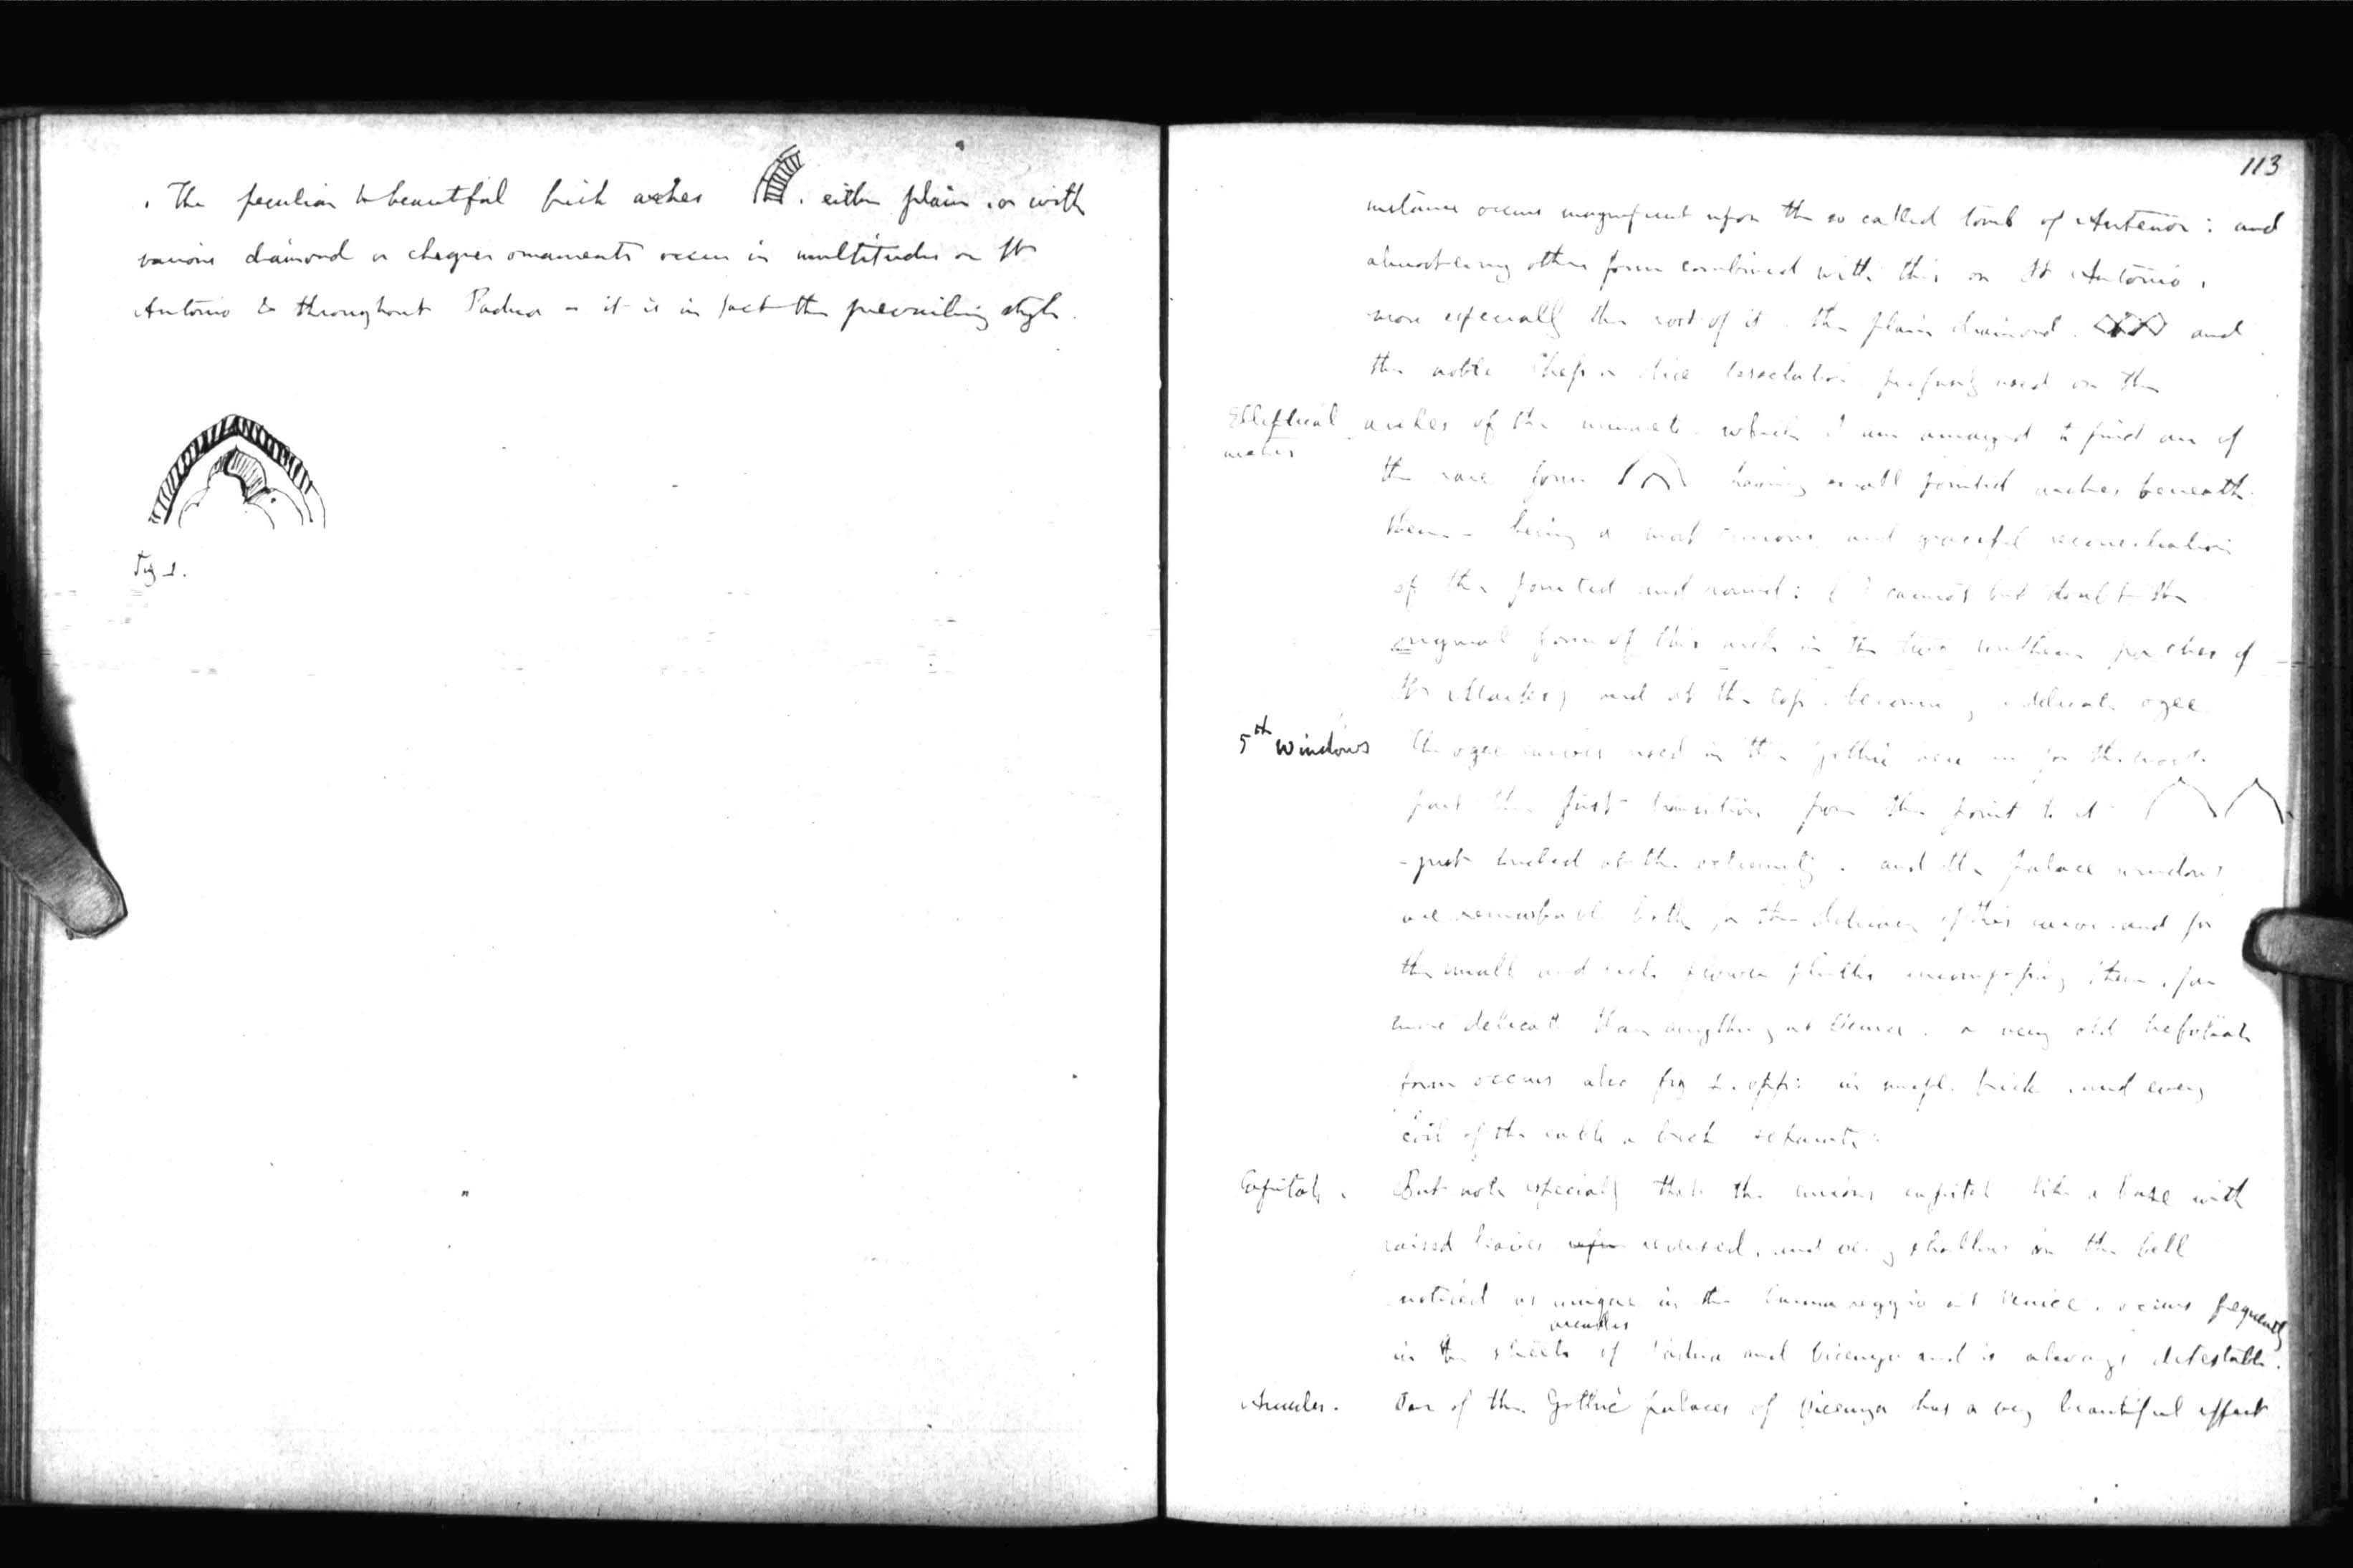 . The peculiar & beautiful brick arches . either plain . or with
various diamond or chequer ornaments occur in multitudes on St
Antonio & throughout Padua - it is in fact the prevailing style.
Fig 1.
113
instance occurs magnificent upon the so called tomb of Antenor : and
almost every other form combined with this on St Antonio .
more especially the root of it . the plain diamond . and
the noble chess or dice profusely used on the
Elliptical arches
arches of the which I am amazed to find are of
the rare form having small pointed arches beneath
them - being a most curious and graceful reconciliation
of the pointed and round : ( I cannot but doubt the
original form of this arch in the two southern porches of
St Marks) and at the top becoming a delicate ogee
5th windows
The ogee curves used in the Gothic here are for the most
part the first transition from the point to it
- just at the extremity . and the palace windows
are remarkable both for the delicacy of this curve and for
the small and rich flower plinths encompassing them , far
more delicate than anything at Venice . a very old trefoliate
form occurs also fig 1. opp: in simple brick . and every
coil of the cable a brick separate
Capitals .
But note especially that the curious capital like a base with
raised leaves reversed . and very shallow on the bell
noticed as unique in the at Venice . occurs frequently
arcades
in the streets of Padua and Vicenza and is always detestable .
One of the Gothic palaces of Vicenza has a very beautiful effect